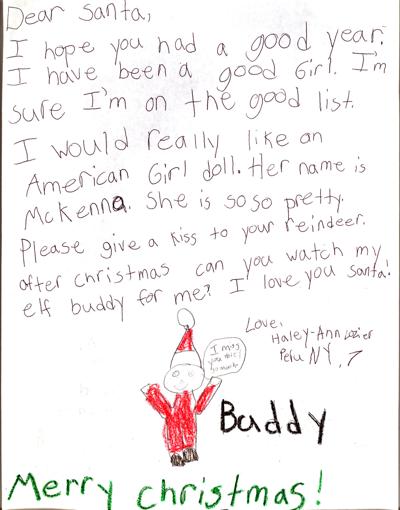 Dear Santa,
I hope you had a good year.
I have been a good Girl. I'm
sure I'm on the good list.
I would really like an
American Girl doll. Her name is
McKenna. She is so so pretty.
Please give a kiss to your reindeer.
after christmas can you watch my
elf buddy for me? I love you Santa!
Love,
Haley-Ann Lozier
Peru NY, 7
I miss
you
Buddy
Merry christmas!